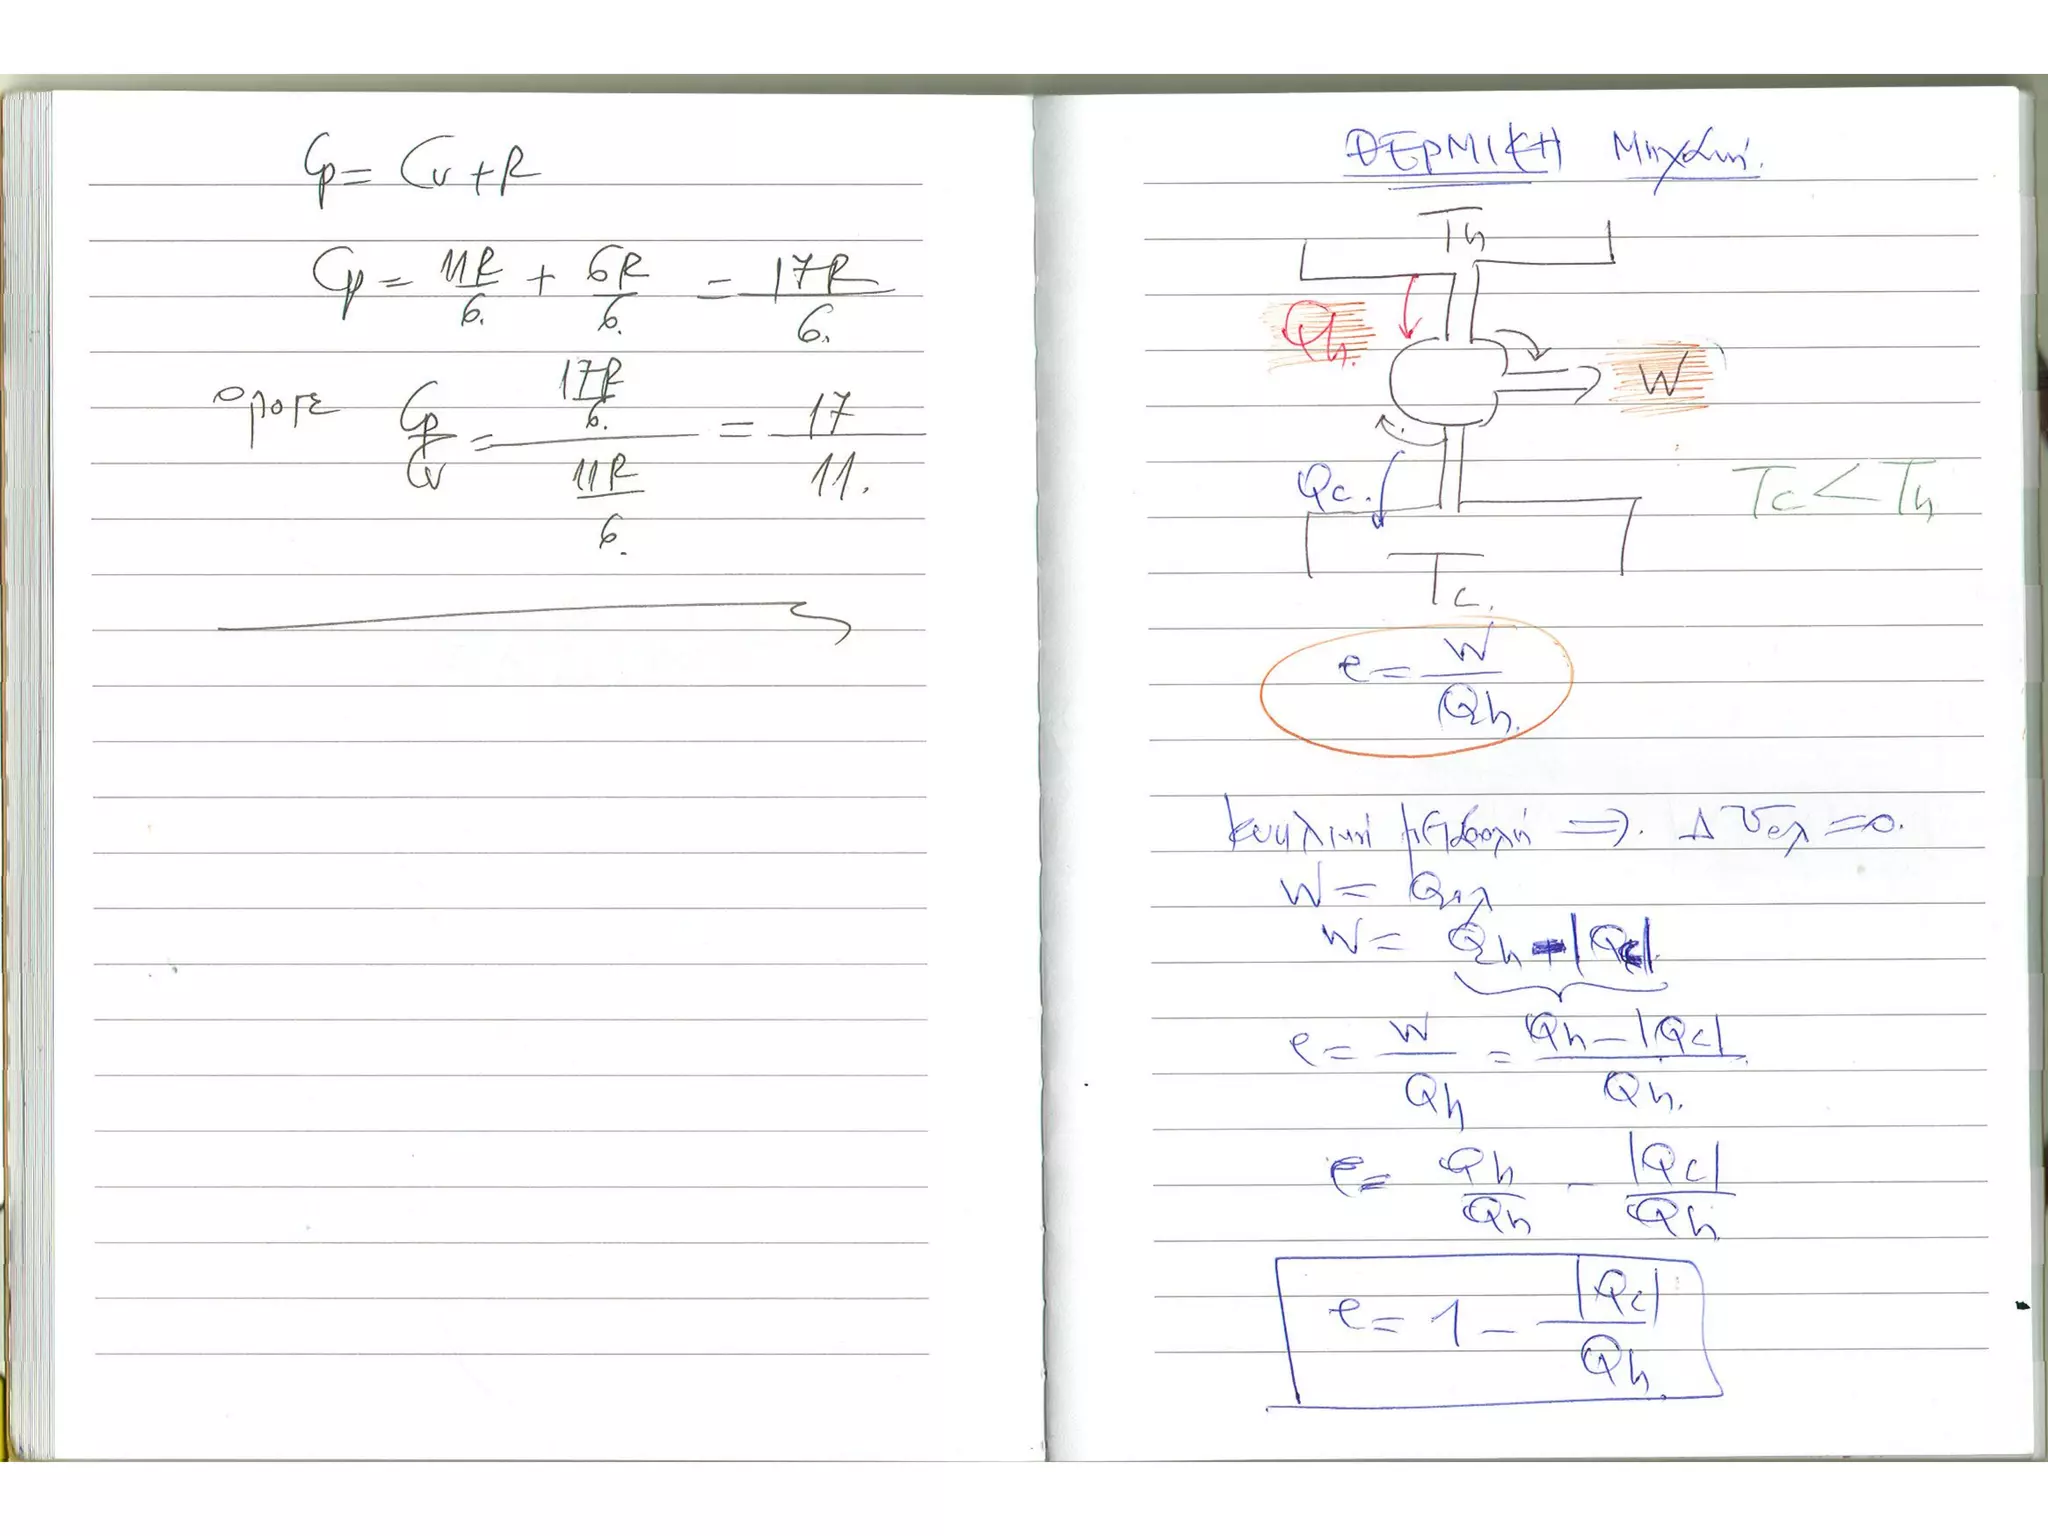 Cp = Cv + R
Cp = 11R/6. + 6R/6. = 17R/6.
Cp/Cv = 17R/6. / 11R/6. = 17/11.
ΘΕΡΜΙΚΗ Μηχανή.
Th
Qh.
W
Qc.
Tc < Th
Tc.
e = W/Qh.
κυκλική μεταβολή ⇒. ΔUολ = 0.
W = Qολ
W = Qh - |Qc|
e = W/Qh = Qh - |Qc|/Qh.
e = Qh/Qh - |Qc|/Qh
e = 1 - |Qc|/Qh.